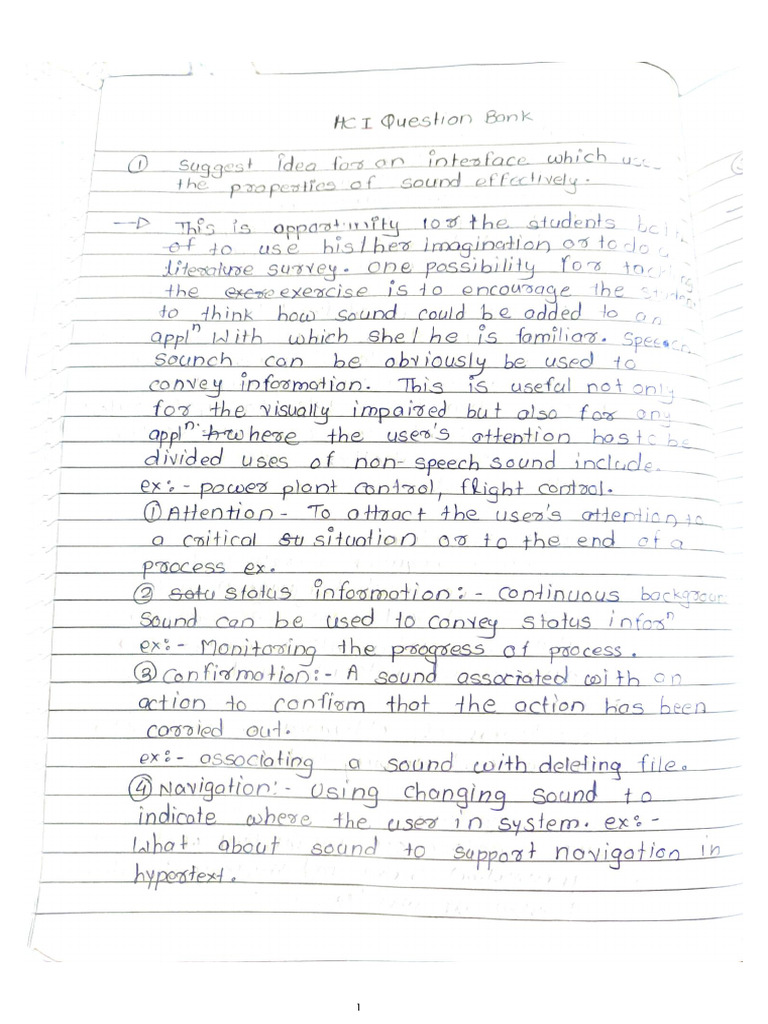 HCI Question Bank
① suggest idea for an interface which use
the properties of sound effectively.
→ This is apportunity for the students
of to use his/her imagination or to do a
literature survey. one possibility for
the excre exercise is to encourage the
to think how sound could be added to an
applⁿ with which she/he is familiar.
sounch can be obviously be used to
convey information. This is useful not only
for the visually impaired but also for any
applⁿ. where the user's attention has to be
divided uses of non-speech sound include.
ex:- power plant control, flight control.
① Attention - To attract the user's attention to
a critical su situation or to the end of a
process ex.
② satu status information:- continuous backgroun
sound can be used to convey status inforⁿ
ex:- Monitoring the progress of process.
③ confirmation:- A sound associated with an
action to confirm that the action has been
carried out.
ex:- associating a sound with deleting file.
④ Navigation:- using changing sound to
indicate where the user in system. ex:-
What about sound to support navigation in
hypertext.
1